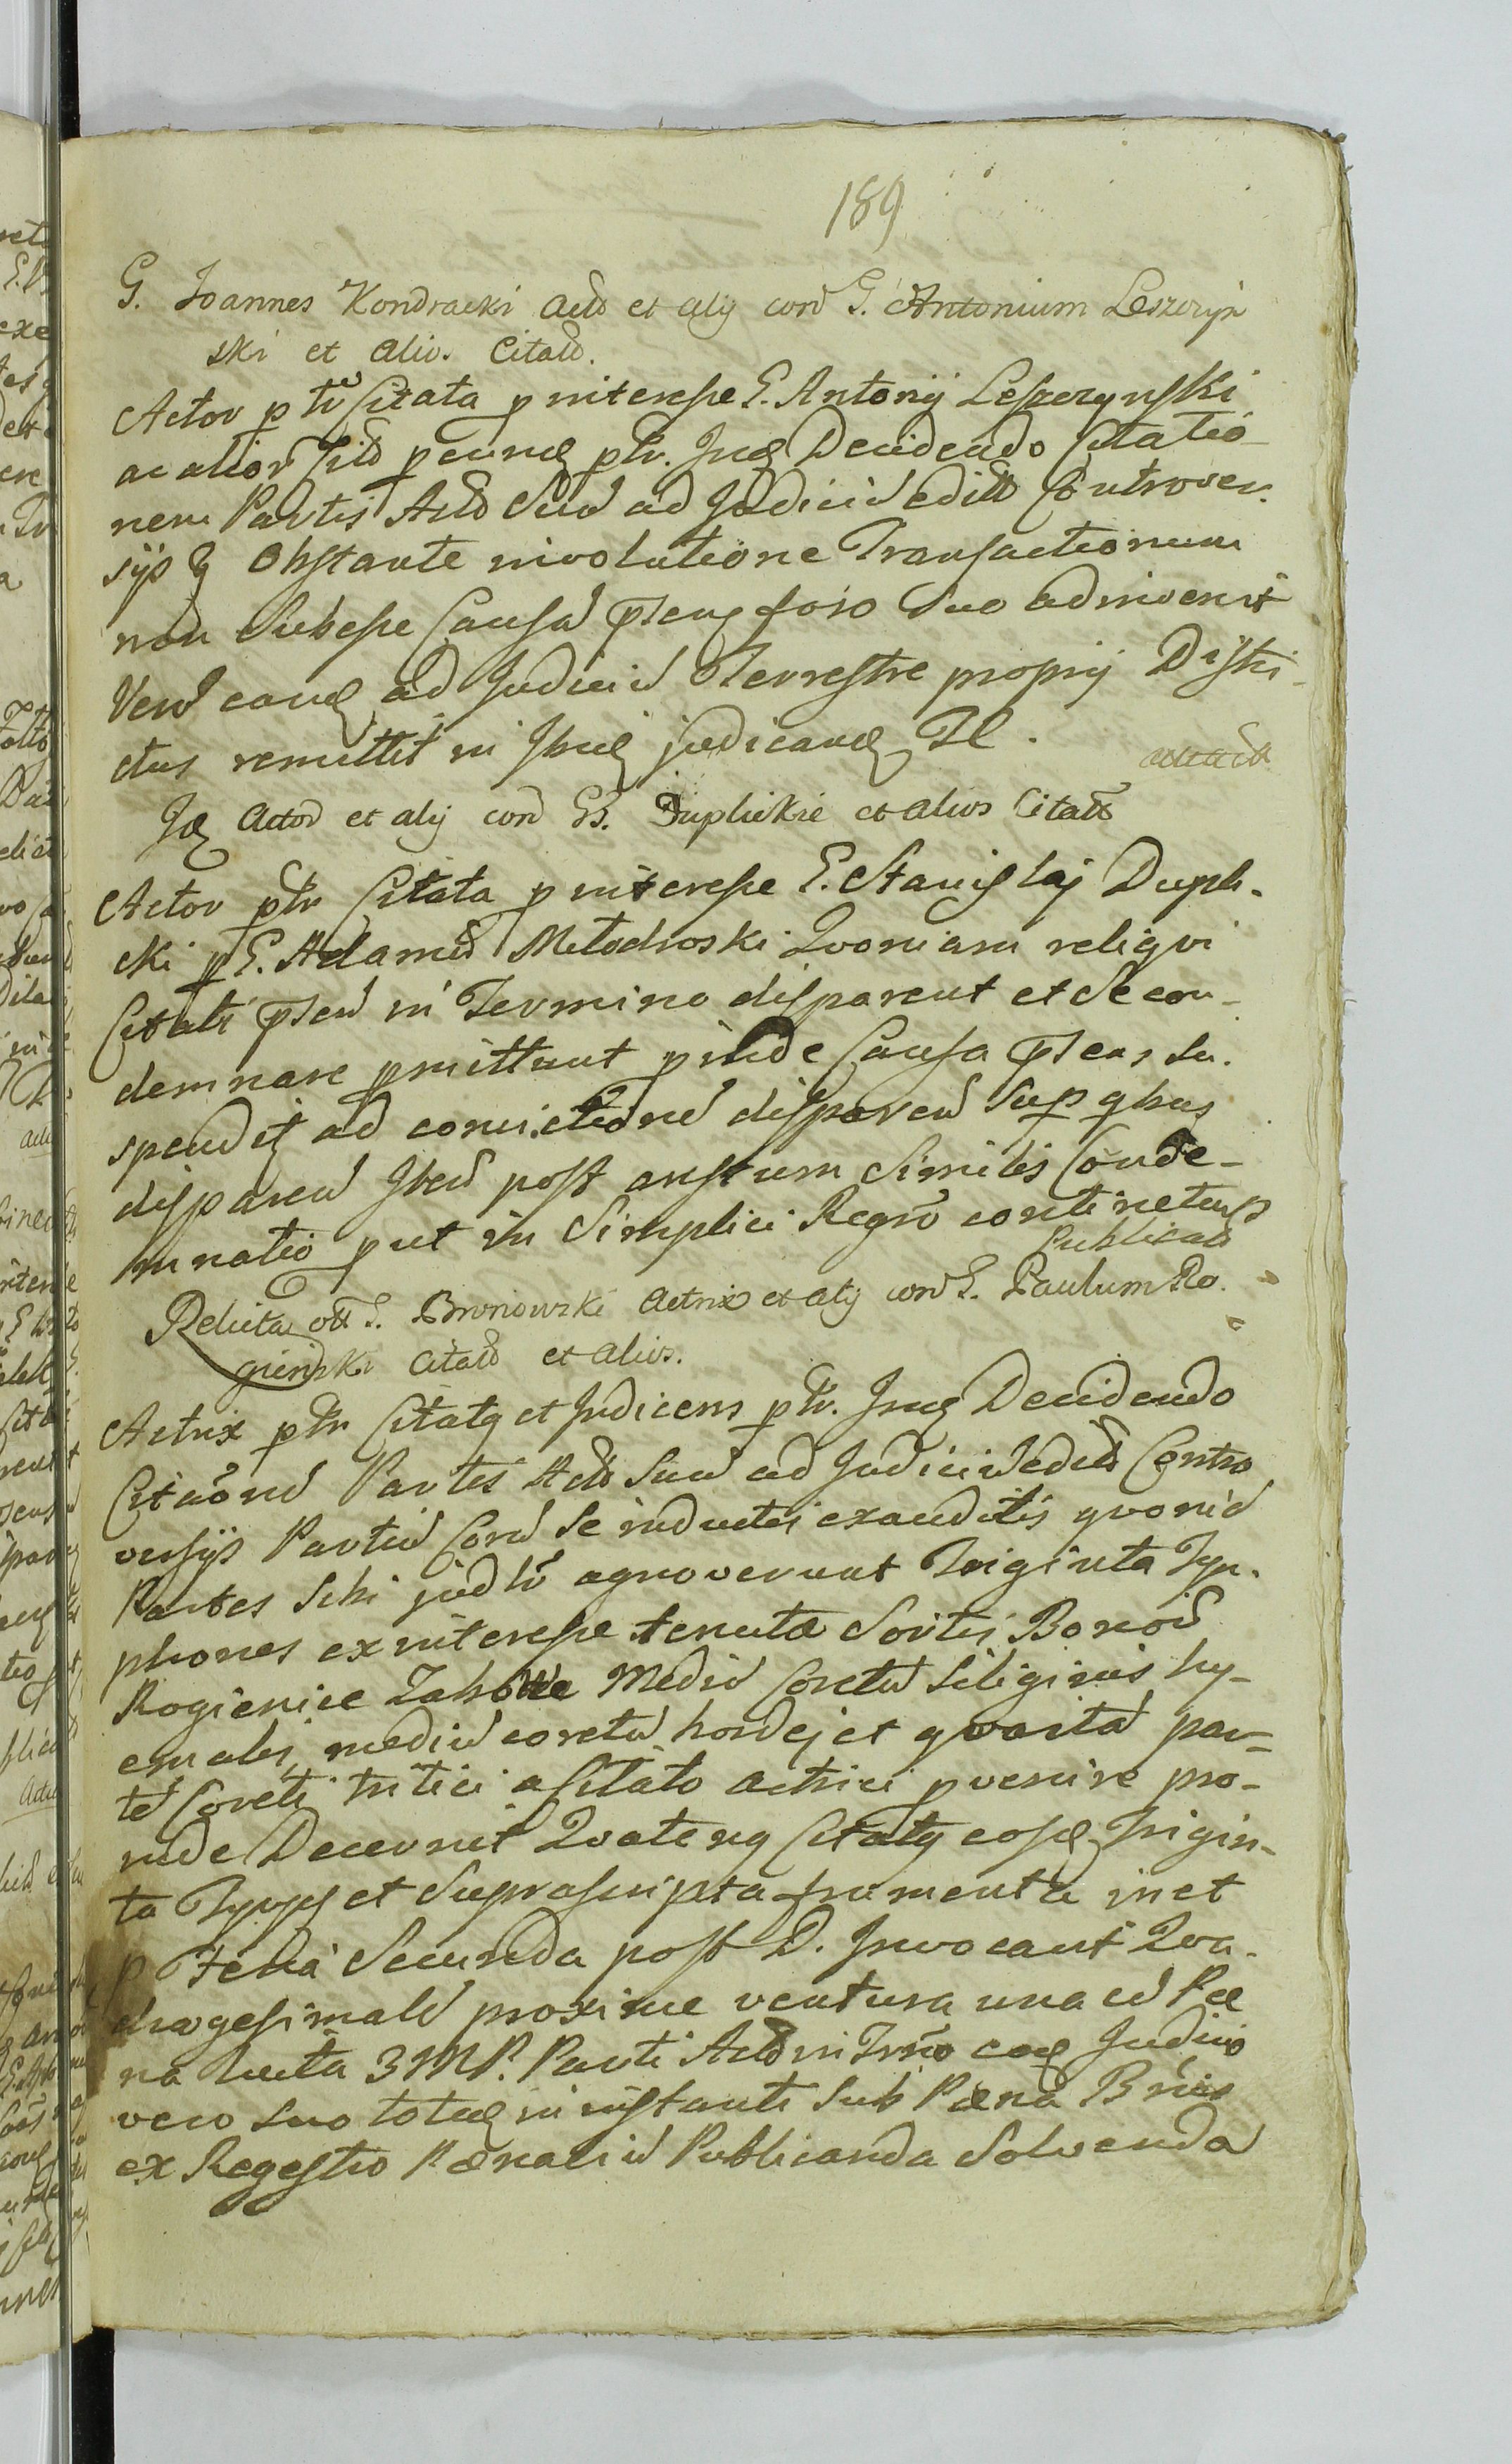 189
G. Joannes Kondracki Act et alij con G. Antonium Leszczyn
ski et alios Citat.
Actor ptr Citata p interesse G. Antonij Leszczynski
ac alior p eunq ptr. Inq Decidendo Citatio
nem Partis Act Sua ad Judiciu edit Controver.
sijs q Obstante involutione Transactionum
non Subesse Causa pteng foro Suo adinvenit
Veru eanq ad Judiciu Terrestre proprij Distri-
ctus remittit in judicanq
Iq Actor et alij con GG. Duplickie et alios Citatt
Actor ptr Citata p interesse G. Stanislaj Dupli-
cki p G. Adamu Mlodnoski Qvoniam reliqvi
Citati pten in Termino disparent et Se con-
demnare pmittunt pinde Causa ptens Su.
spendit ad convictione disparen Sup qbus
disparen post anstum Similis Conde-
mnatio put in Simplici Regro continetur
Publicat
Relicta ott G. Bronowski Actrix et alij con G. Paulum Ro.
gienski Citat et alios.
Actrix ptr Citatq et Judicens ptr. Inq Decidendo
Citaone Partis Act Sua ad Judiciu edit Contro
versijs Partiu Con Se inductis exauditis qvonia
Partes Sibi agnoverunt Triginta Tyn.
phones ex interesse tenuta Sortis Bonor
Rogienice Mediu Coretu Siliginis hy-
emalis, mediu coretu hordej et qvarta par-
te Coreti tritici a Citato Actrici pvenire pro-
inde Decernit Qvatenq Citatq eosq Trigin-
ta Tynff et Suprascripta frumenta in et
p Feria Secunda post D. Invocavit Qva-
dragesimale proxime ventura una cu Pæ
na Luita 3 MP. Parti Act in Trno eoq Judicio
vero Suo totuq in instanti Sub Pæna Bnis
ex Regestro Pænaliu Publicanda Solvenda